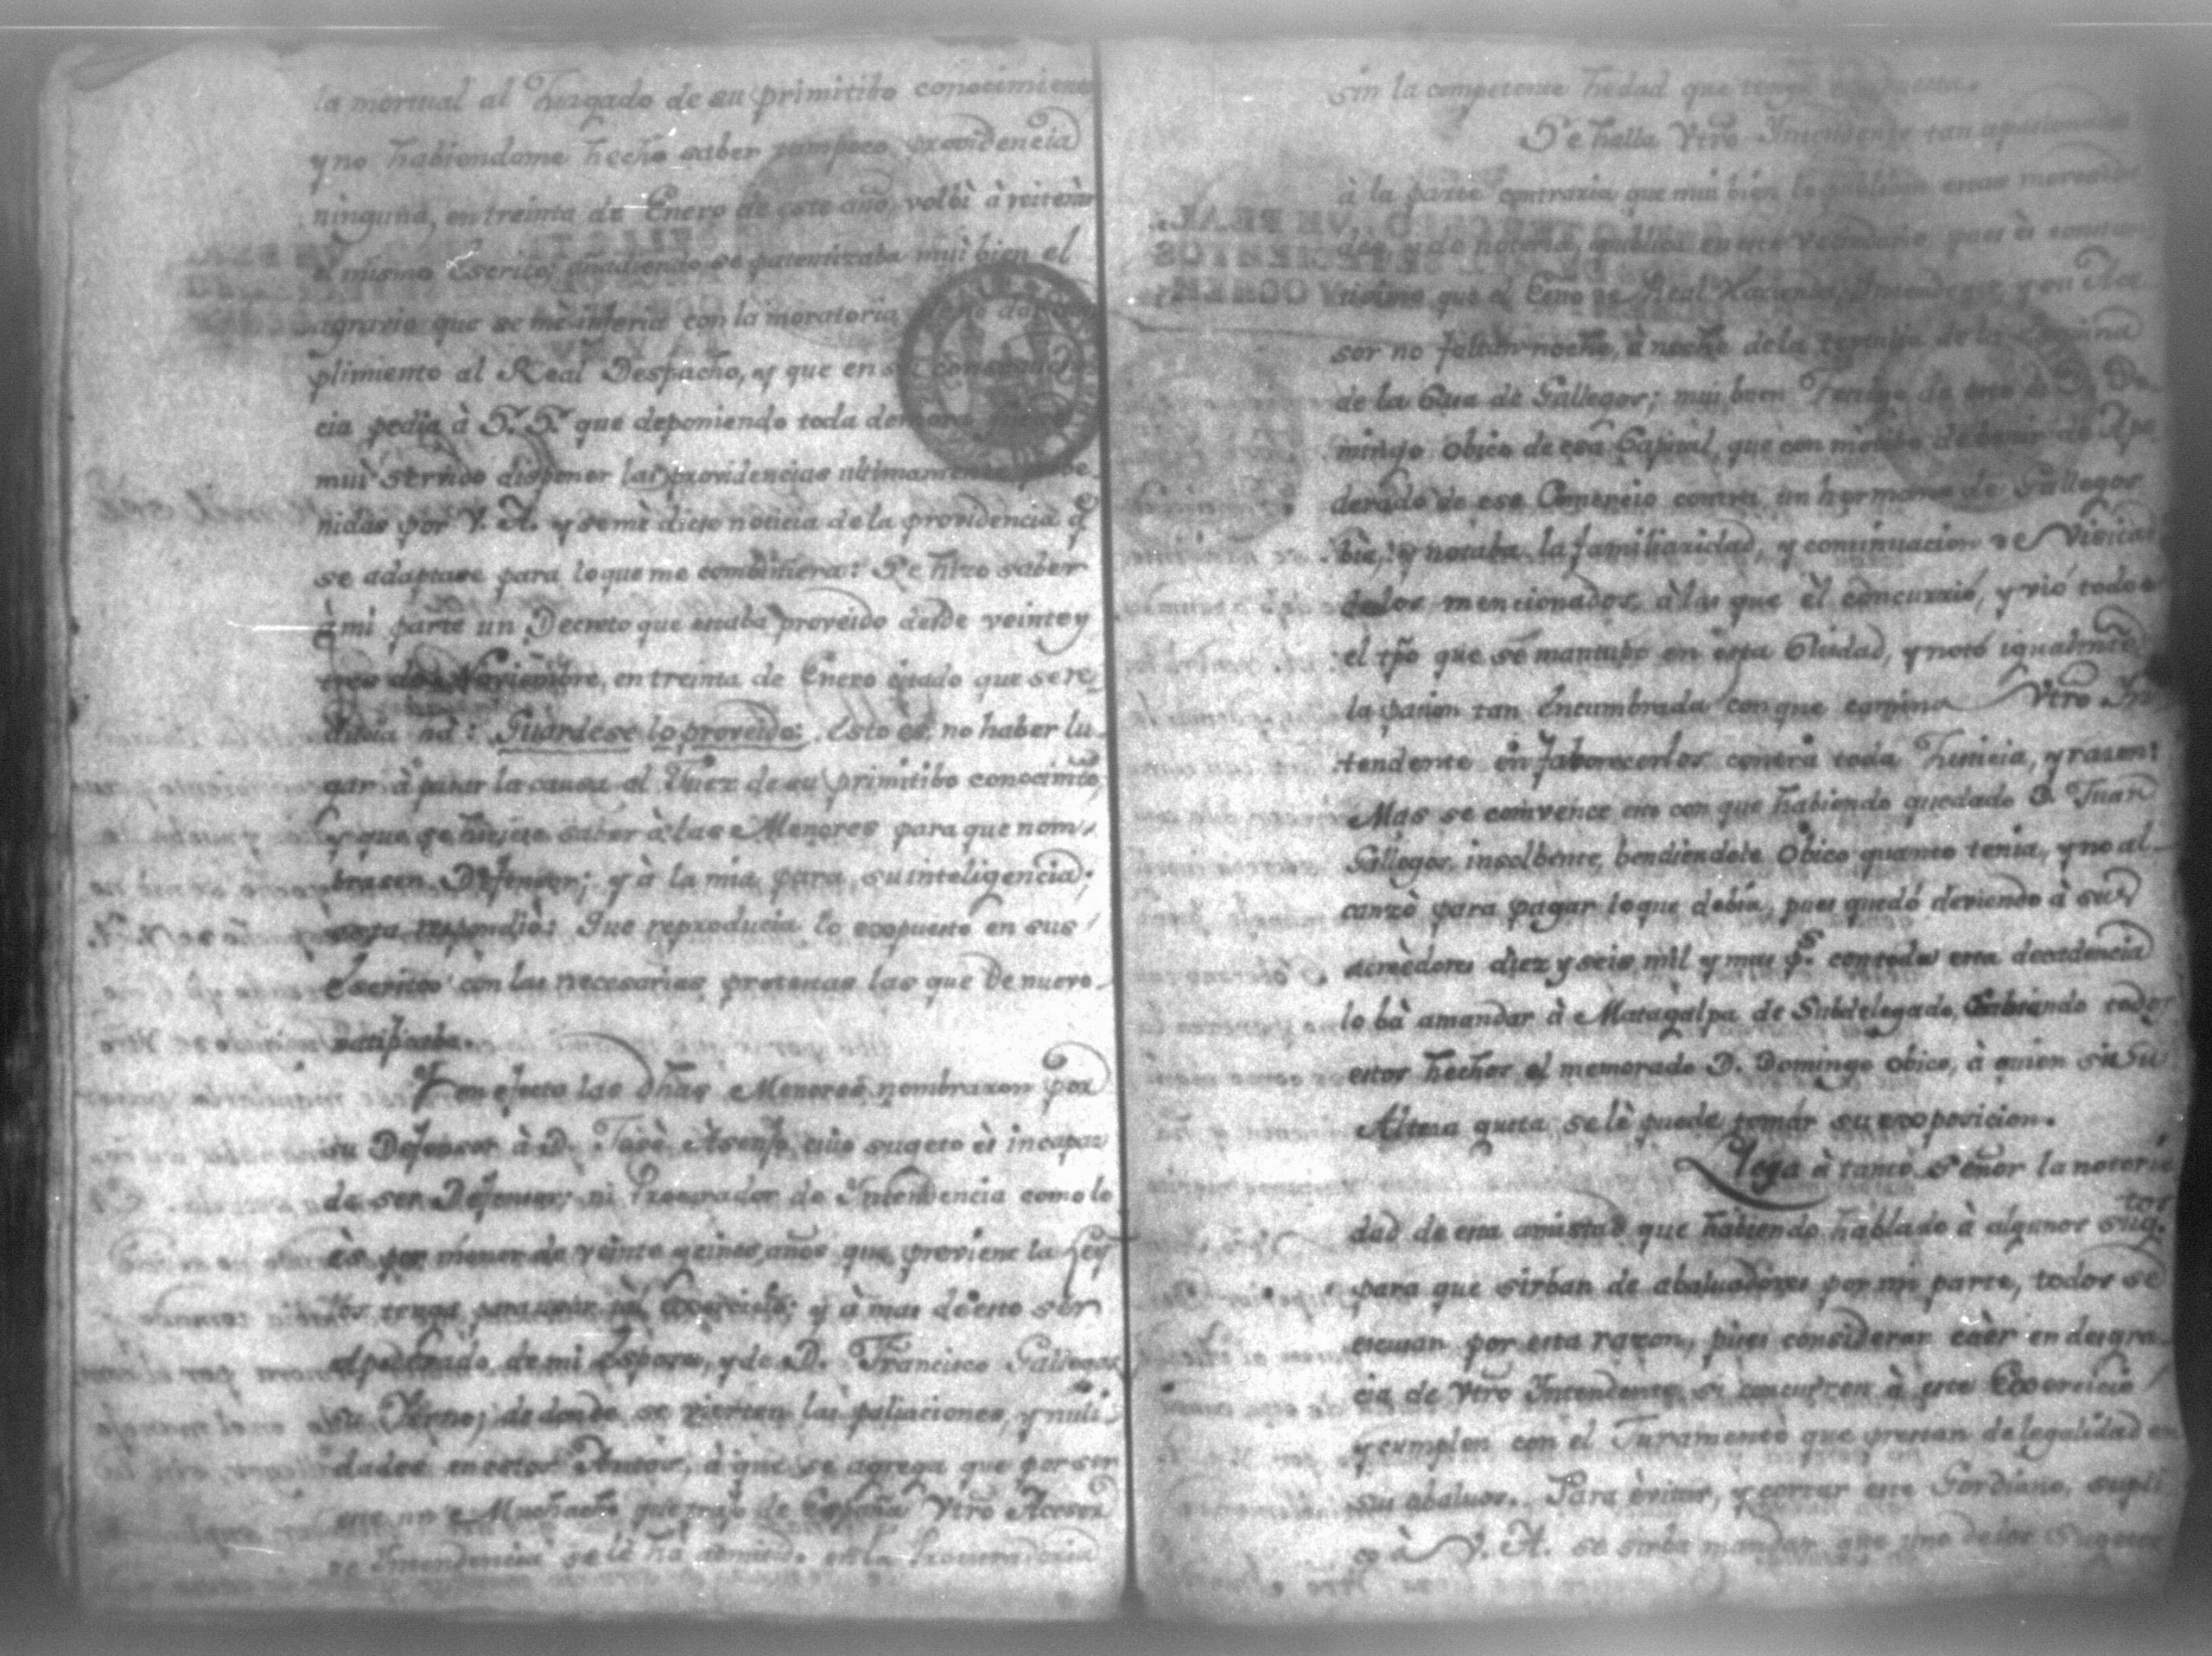 la mortual al Juzgado de su primitibo conocimiento
y no habiendome hecho saber tampoco providencia
ninguna, en treinta de Enero de este año, volbi à reiterar
el mismo Escrito; añadiendo se patentizaba mui bien el
agravio que se mè inferia con la moratoria dar
plimiento al Real Despacho, y que en su consequen
cia pedia à S. S. que deponiendo toda demora
mui servido disponer las providencias ultimamente
nidas por V. A. y se mè diese noticia de la providencia q̃
se adaptase para lo que me combiniera: Se hizo saber
à mi parte un Decreto que estaba proveido desde veinte y
tres de Noviembre, en treinta de Enero citado que se re
ducia há: Guardese lo proveido: Esto es, no haber lu
gar à pasar la causa al Juez de su primitibo conocimto,
y que se hiciese saber à las Menores para que nom
brasen Defensor; y à la mia para su inteligencia;
respondiò: Que reproducia lo expuesto en sus
Escritos con las necesarias protestas las que de nuevo
ratificaba.
Y en efecto las dhas Menores nombraron por
su Defensor à D. Josè Asenjo cuio sugeto ès incapaz
de ser Defensor; ni Procurador de Intendencia como lo
ès por menor de veinte y cinco años que proviene la Ley
los tenga para usar tal Exercicio; y à mas de esto ser
Apoderado de mi Esposa, y de D. Francisco Gallegos
su Yerno; de donde se vierten las paliaciones, y nuli
dades en estos Autos, à que se agrega que por ser
este un Muchacho que trajo de España Vtro Asesor
de Intendencia se lè ha admitido en la Procuradoria
sin la competente hedad que tengo expuesta.
Se halla Vtro Intendente tan apasionado
à la parte contraria que mui bien lo publica
y de notoria publica en este vecindario pues ès constan
tisimo que el Esno de Real Hacienda, Intendente, y su Ase
sor no faltan noche, à noche de la tertulia de la
de la Qua de Gallegos; mui buen Testigo de esto ès D. Do
mingo Obico de esa Capital, que con motibo de benir de Apo
derado de ese Comercio contra un hermano de Gallegos
bia, y notaba la familiaridad, y continuacion de Visitas
de los mencionados, à las que èl concurrió, y vió todo
el tpo que se mantubo en esta Ciudad, y notó igualmte
la pasion tan Encumbrada con que camina Vtro In
tendente en faborecerlos contra toda Justicia, y razon:
Mas se convence esto con que habiendo quedado D. Juan
Gallegos insolbente, bendiendole Obico quanto tenia, y no al
canzò para pagar lo que debia, pues quedó deviendo à sus
acreedores diez y seis mil y mas ps. con toda esta decadencia
lo bà amandar à Matagalpa de Subdelegado, Sabiendo todos
estos hechos el memorado D. Domingo Obico, à quien si Su
Alteza gusta se lè puede tomar su exposicion.
Llega à tanto Señor la notorie
dad de esta amistad que habiendo hablado à algunos sug.tos
para que sirban de abaluadores por mi parte, todos se
escusan por esta razon, pues considerar caèr en desgra
cia de Vtro Intendente si concurren à este Exercicio
y cumplen con el Juramento que prestan de legalidad en
sus abaluos. Para èvitar, y cortar este Gordiano, supli
co à V. A. se sirba mandar que uno de los Sugetos